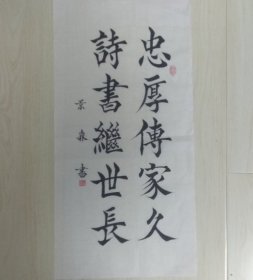 忠厚傳家久
詩書繼世長
景森書